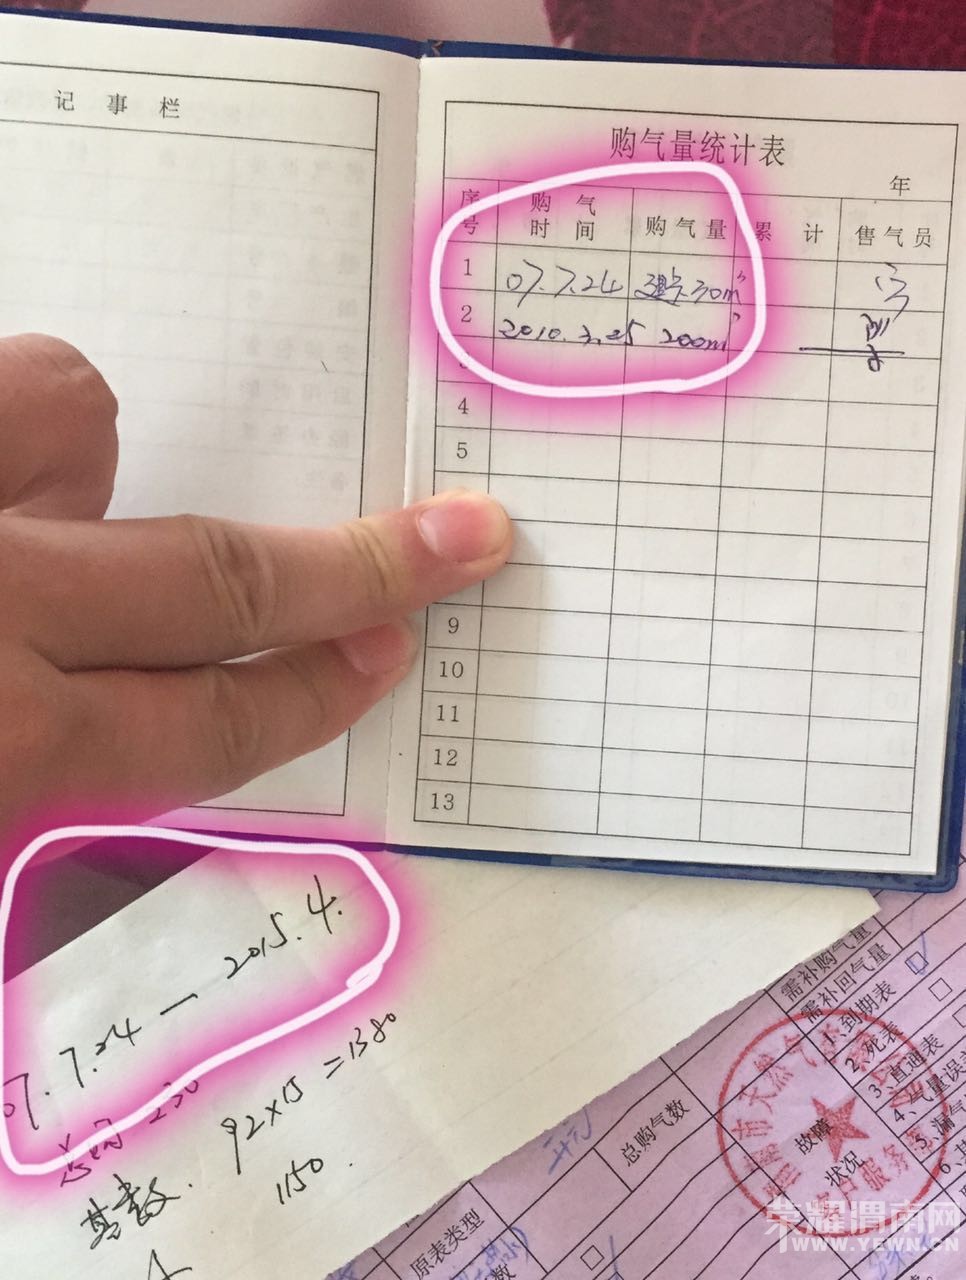 记事栏
购气量统计表
年
序号 购气时间 购气量 累计 售气员
1 07.7.24 30m³
2 2010.3.25 200m³
3
4
5
9
10
11
12
13
07.7.24 — 2015.4.
总购 230
基数. 92×15=1380
1150.
需补购气量
需补回气量
1、到期表
2、死表
3、直通表
4、气量误
5、漏气
6、其
故障状况
总购气数
原表类型
市天然气
荣耀渭南网
WWW.YEWN.CN